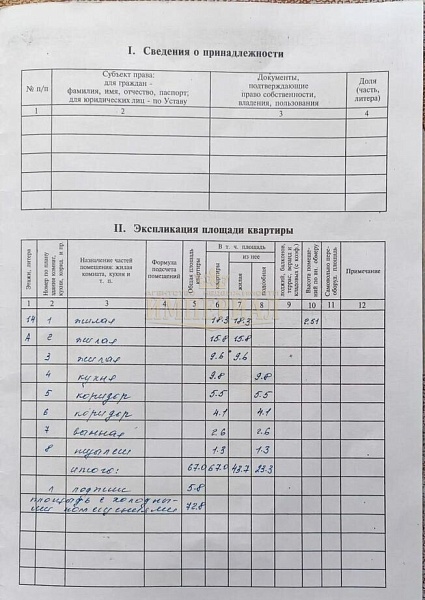 I. Сведения о принадлежности
№ п/п
Субъект права:
для граждан -
фамилия, имя, отчество, паспорт;
для юридических лиц - по Уставу
Документы,
подтверждающие
право собственности,
владения, пользования
Доля
(часть,
литера)
1 2 3 4
II. Экспликация площади квартиры
Этажи, литера
Номер по плану
здания комнат,
кухни, корид. и пр.
Назначение частей
помещения: жилая
комната, кухня и
т. п.
Формула
подсчета
помещений
Общая площадь
квартиры
В т. ч. площадь
квартиры
из нее
жилая
подсобная
лоджий, балконов,
террас, веранд и
кладовых (с коэф.)
Высота помеще-
ний по вн. обмеру
Самовольно пере-
оборуд. площадь
Примечание
1 2 3 4 5 6 7 8 9 10 11 12
1 жилая 18.3 18.3 2.51
А 2 жилая 15.8 15.8
3 жилая 9.6 9.6
4 кухня 9.8 9.8
5 коридор 5.5 5.5
6 коридор 4.1 4.1
7 ванная 2.6 2.6
8 туалет 1.3 1.3
итого: 67.0 67.0 43.7 23.3
л лоджис 5.8
площадь с холодны-
ми помещениями 72.8
ИМПЕРИАЛ